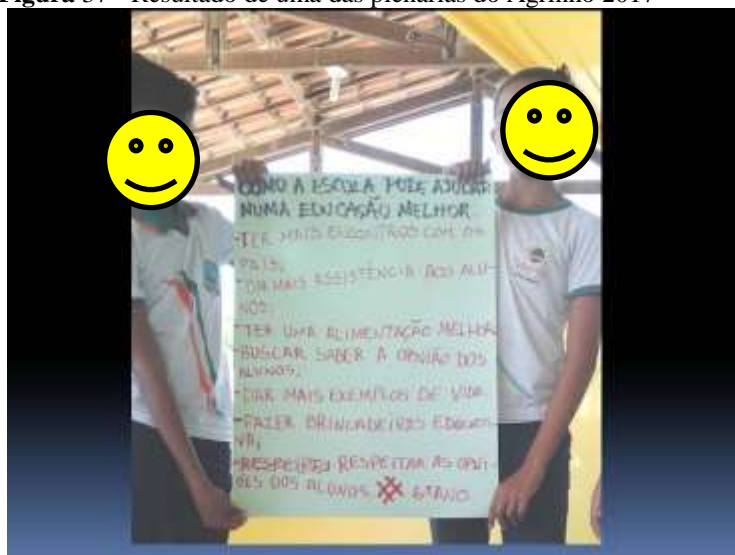 Figura 37 - Resultado de uma das plenárias do Agrinho 2017
COMO A ESCOLA PODE AJUDAR
NUMA EDUCAÇÃO MELHOR
-TER MAIS ENCONTROS COM OS
PAIS;
-DAR MAIS ASSISTÊNCIA AOS ALU-
NOS;
-TER UMA ALIMENTAÇÃO MELHOR
-BUSCAR SABER A OPINIÃO DOS
ALUNOS;
-DAR MAIS EXEMPLOS DE VIDA
-FAZER BRINCADEIRAS EDUCATI-
VA;
RESPEITAR AS OPNI-
ÕES DOS ALUNOS 6º ANO